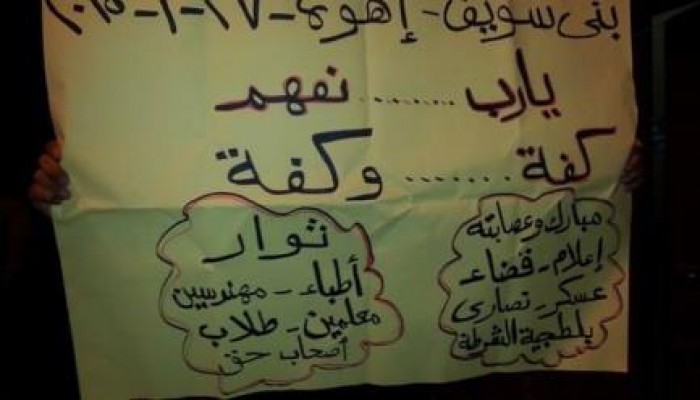 بنى سويف - إهوة - ٢٧-٢-٢٠١٥
يارب ....... نفهم
كفة ....... وكفة
مبارك وعصابته
إعلام - قضاء
عسكر - نصارى
بلطجية الشرطة
ثوار
أطباء - مهندسين
معلمين - طلاب
أصحاب حق